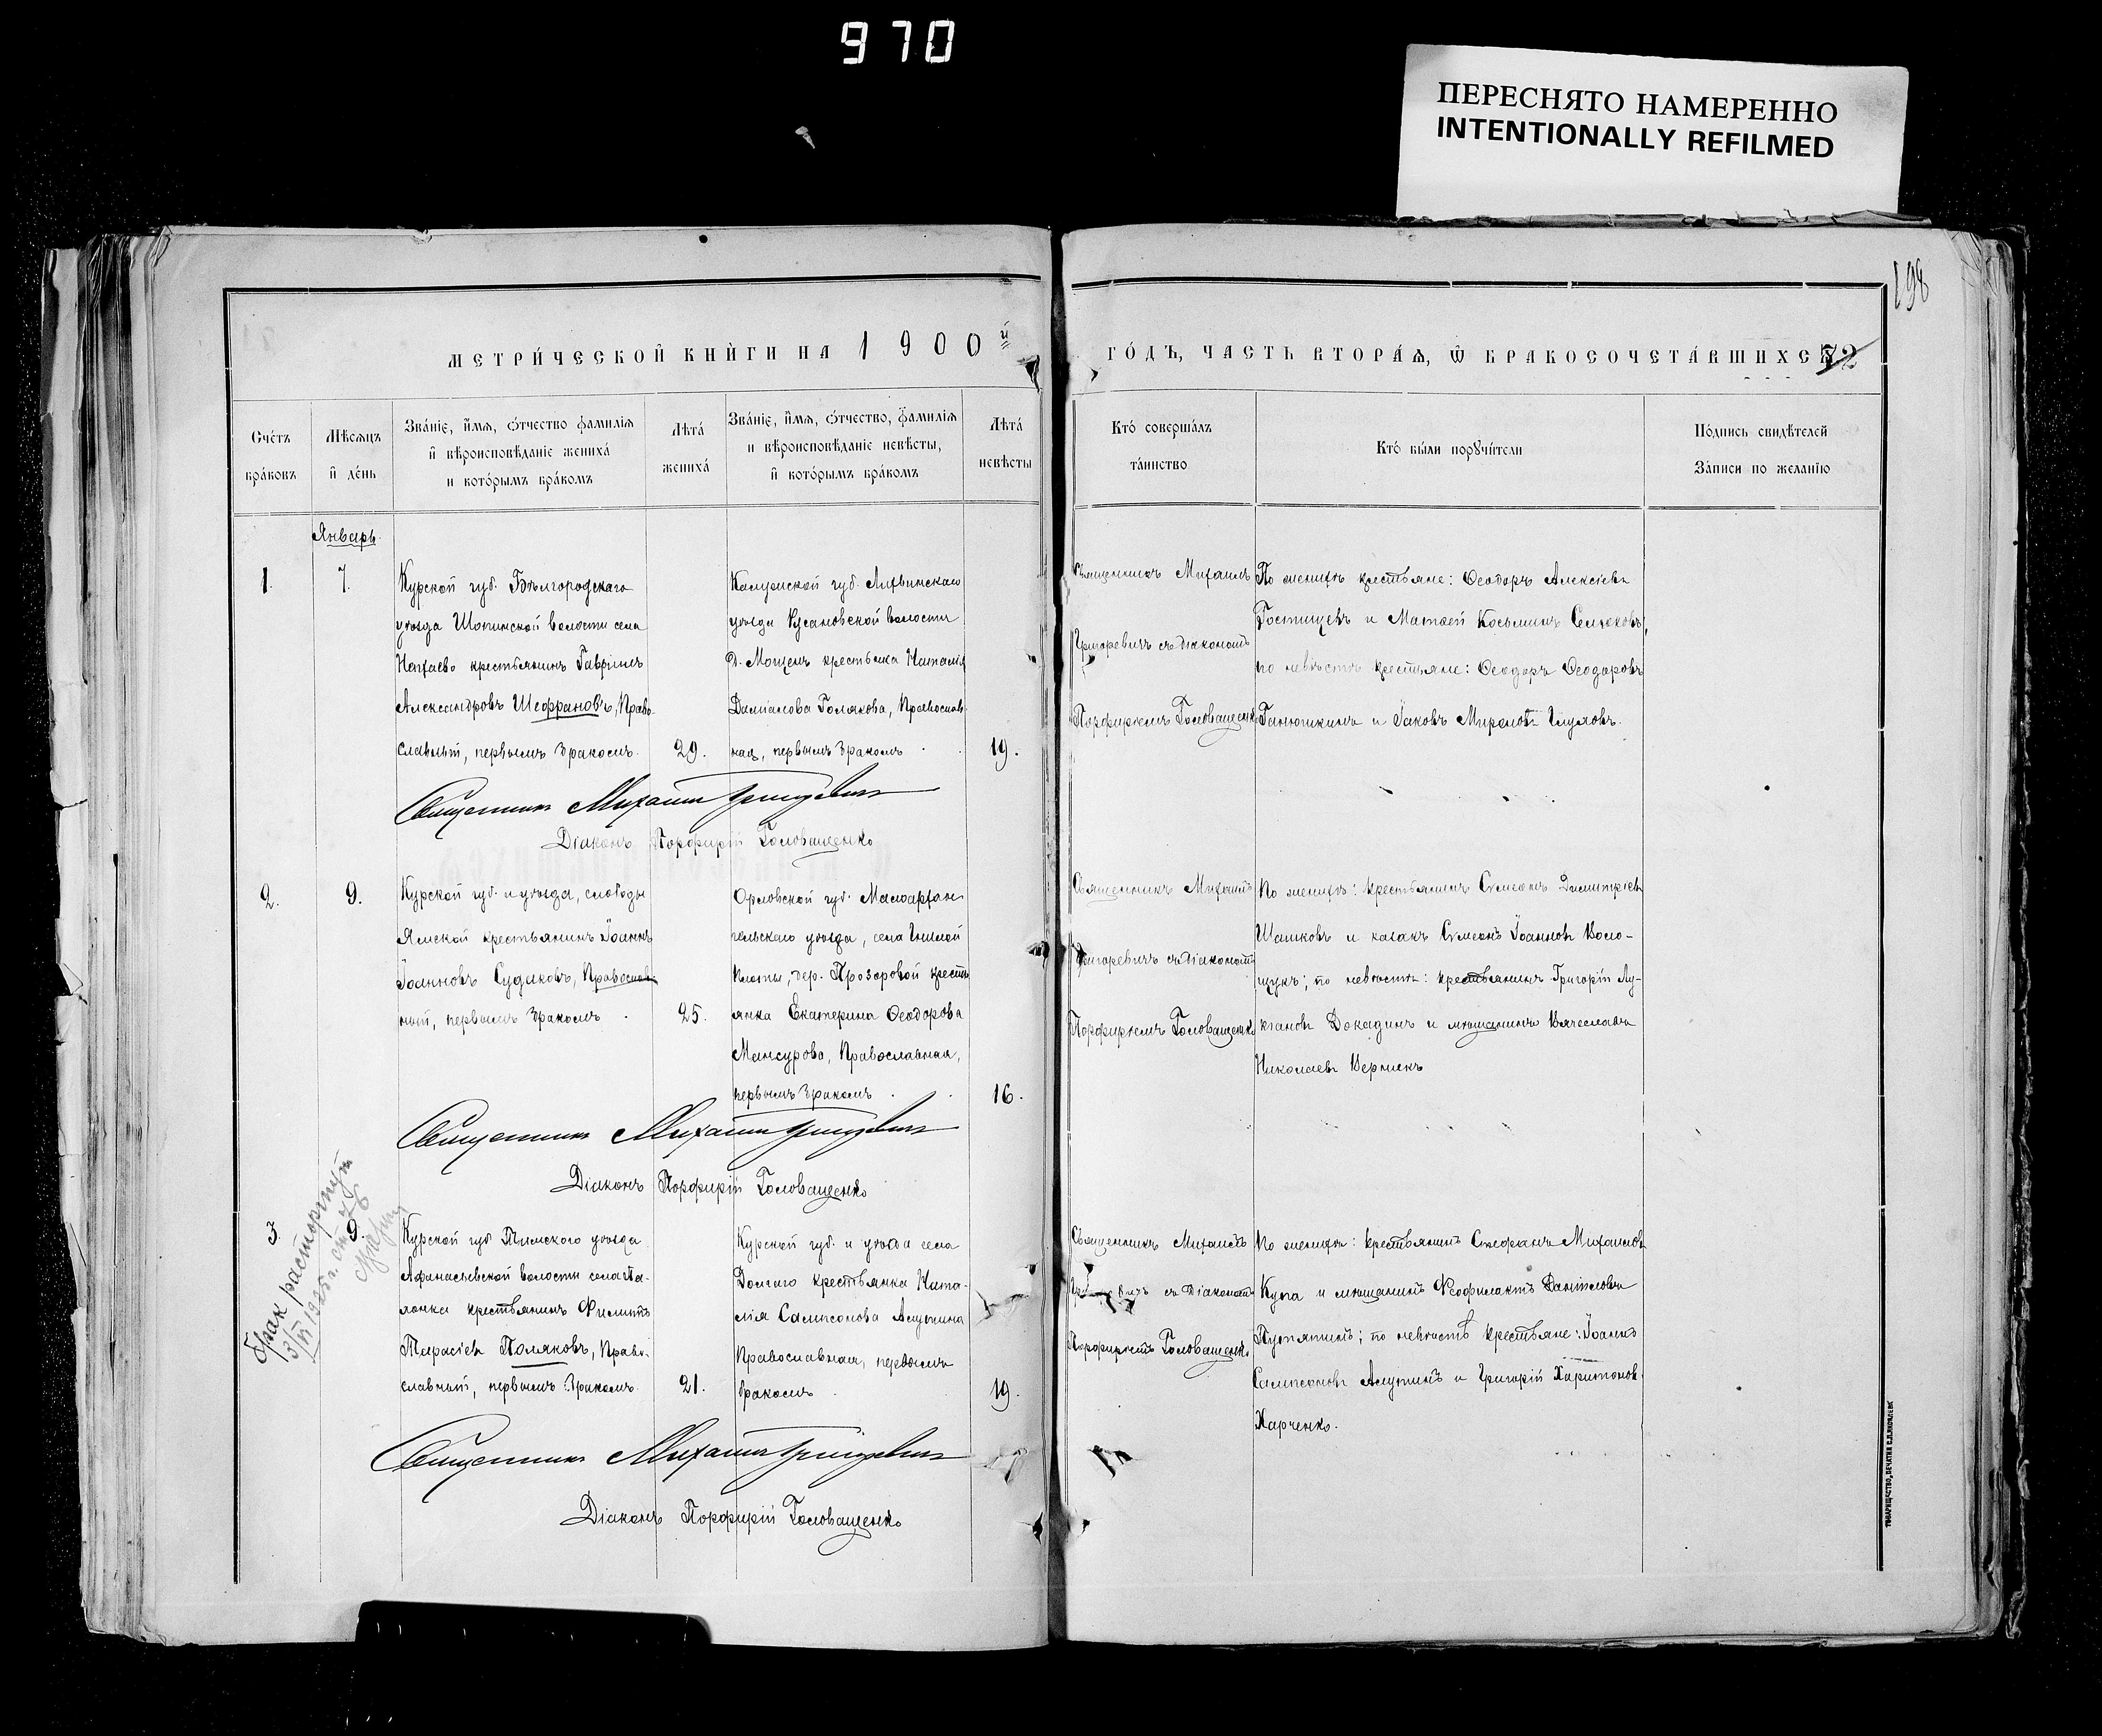 970
ПЕРЕСНЯТО НАМЕРЕННО
INTENTIONALLY REFILMED
198
МЕТРИ́ЧЕСКОЙ КНИ́ГИ НА 1900й
ГО́ДЪ, ЧАСТЬ ВТОРА́Ѧ, Ѿ БРАКОСОЧЕТА́ВШИХСѦ
72
Сче́тъ
бра́ковъ
Мѣ́сѧцъ
и де́нь
Зва́нїе, и́мѧ, ѻ́тчество фамилїѧ
и вѣроисповѣ́данїе жениха́
и кото́рымъ бра́комъ
Лѣта́
жениха́
Зва́нїе, и́мѧ, ѻ́тчество, фамилїѧ
и вѣроисповѣ́данїе невѣ́сты,
и кото́рымъ бра́комъ
Лѣта́
невѣ́сты
Кто́ соверша́лъ
та́инство
Кто́ бы́ли порꙋчи́тели
По́дпись свидѣ́телей
За́писи по жела́нїю
Январь.
1.
7.
Курской губ. Бѣлгородскаго
уѣзда Шопинской волости села
крестьянинъ Гавріилъ
Александровъ Шефрановъ, Право-
славный, первымъ бракомъ.
29.
Калужской губ. Лихвинскаго
уѣзда волости
крестьянка Наталія
Даміанова Голякова, Православ-
ная, первымъ бракомъ
19.
Священникъ Михаилъ
Григоревичъ съ діакономъ
Порфиріемъ Головащенко
По женихѣ крестьяне: Ѳеодоръ Алексіевъ
Гостищевъ и Матѳей Косьминъ
по невѣстѣ крестьяне: Ѳеодоръ Ѳеодоровъ
Ганюшкинъ и Іаковъ Мироновъ Глуховъ.
Священникъ Михаилъ Григоревичъ
Діаконъ Порфирій Головащенко
2.
9.
Курской губ. и уѣзда, слободы
Ямской крестьянинъ Іоаннъ
Іоанновъ Судаковъ, Православ-
ный, первымъ бракомъ
25.
Орловской губ. Малоархан-
гельскаго уѣзда, села Гнилой
Плоты, дер. Прозоровой кресть-
янка Екатерина Ѳеодорова
Мансурова, Православная,
первымъ бракомъ
16.
Священникъ Михаилъ
Григоревичъ съ діакономъ
Порфиріемъ Головащенко
По женихѣ: крестьянинъ Сѵмеонъ Димитріевъ
Шашковъ и казакъ Сѵмеонъ Іоанновъ Воло-
щукъ; по невѣстѣ: крестьянинъ Григорій Лу-
кіановъ Докадинъ и мѣщанинъ Вячеславъ
Николаевъ
Священникъ Михаилъ Григоревичъ
Діаконъ Порфирій Головащенко
3.
9.
Брак расторгнут
Курской губ. Тимскаго уѣзда
Аѳанасьевской волости
крестьянинъ Филиппъ
Тарасіевъ Поляковъ, Право-
славный, первымъ бракомъ.
21.
Курской губ. и уѣзда села
Долгаго крестьянка Ната-
лія Сампсонова Алутина
Православная, первымъ
бракомъ
19.
Священникъ Михаилъ
съ діакономъ
Порфиріемъ Головащенко
По женихѣ: крестьянинъ Стефанъ Михаиловъ
Купа и мѣщанинъ Ѳеофилактъ Даніиловъ
Путятинъ; по невѣстѣ крестьяне: Іоаннъ
Сампсоновъ Алутинъ и Григорій Харитоновъ
Харченко.
Священникъ Михаилъ Григоревичъ
Діаконъ Порфирій Головащенко